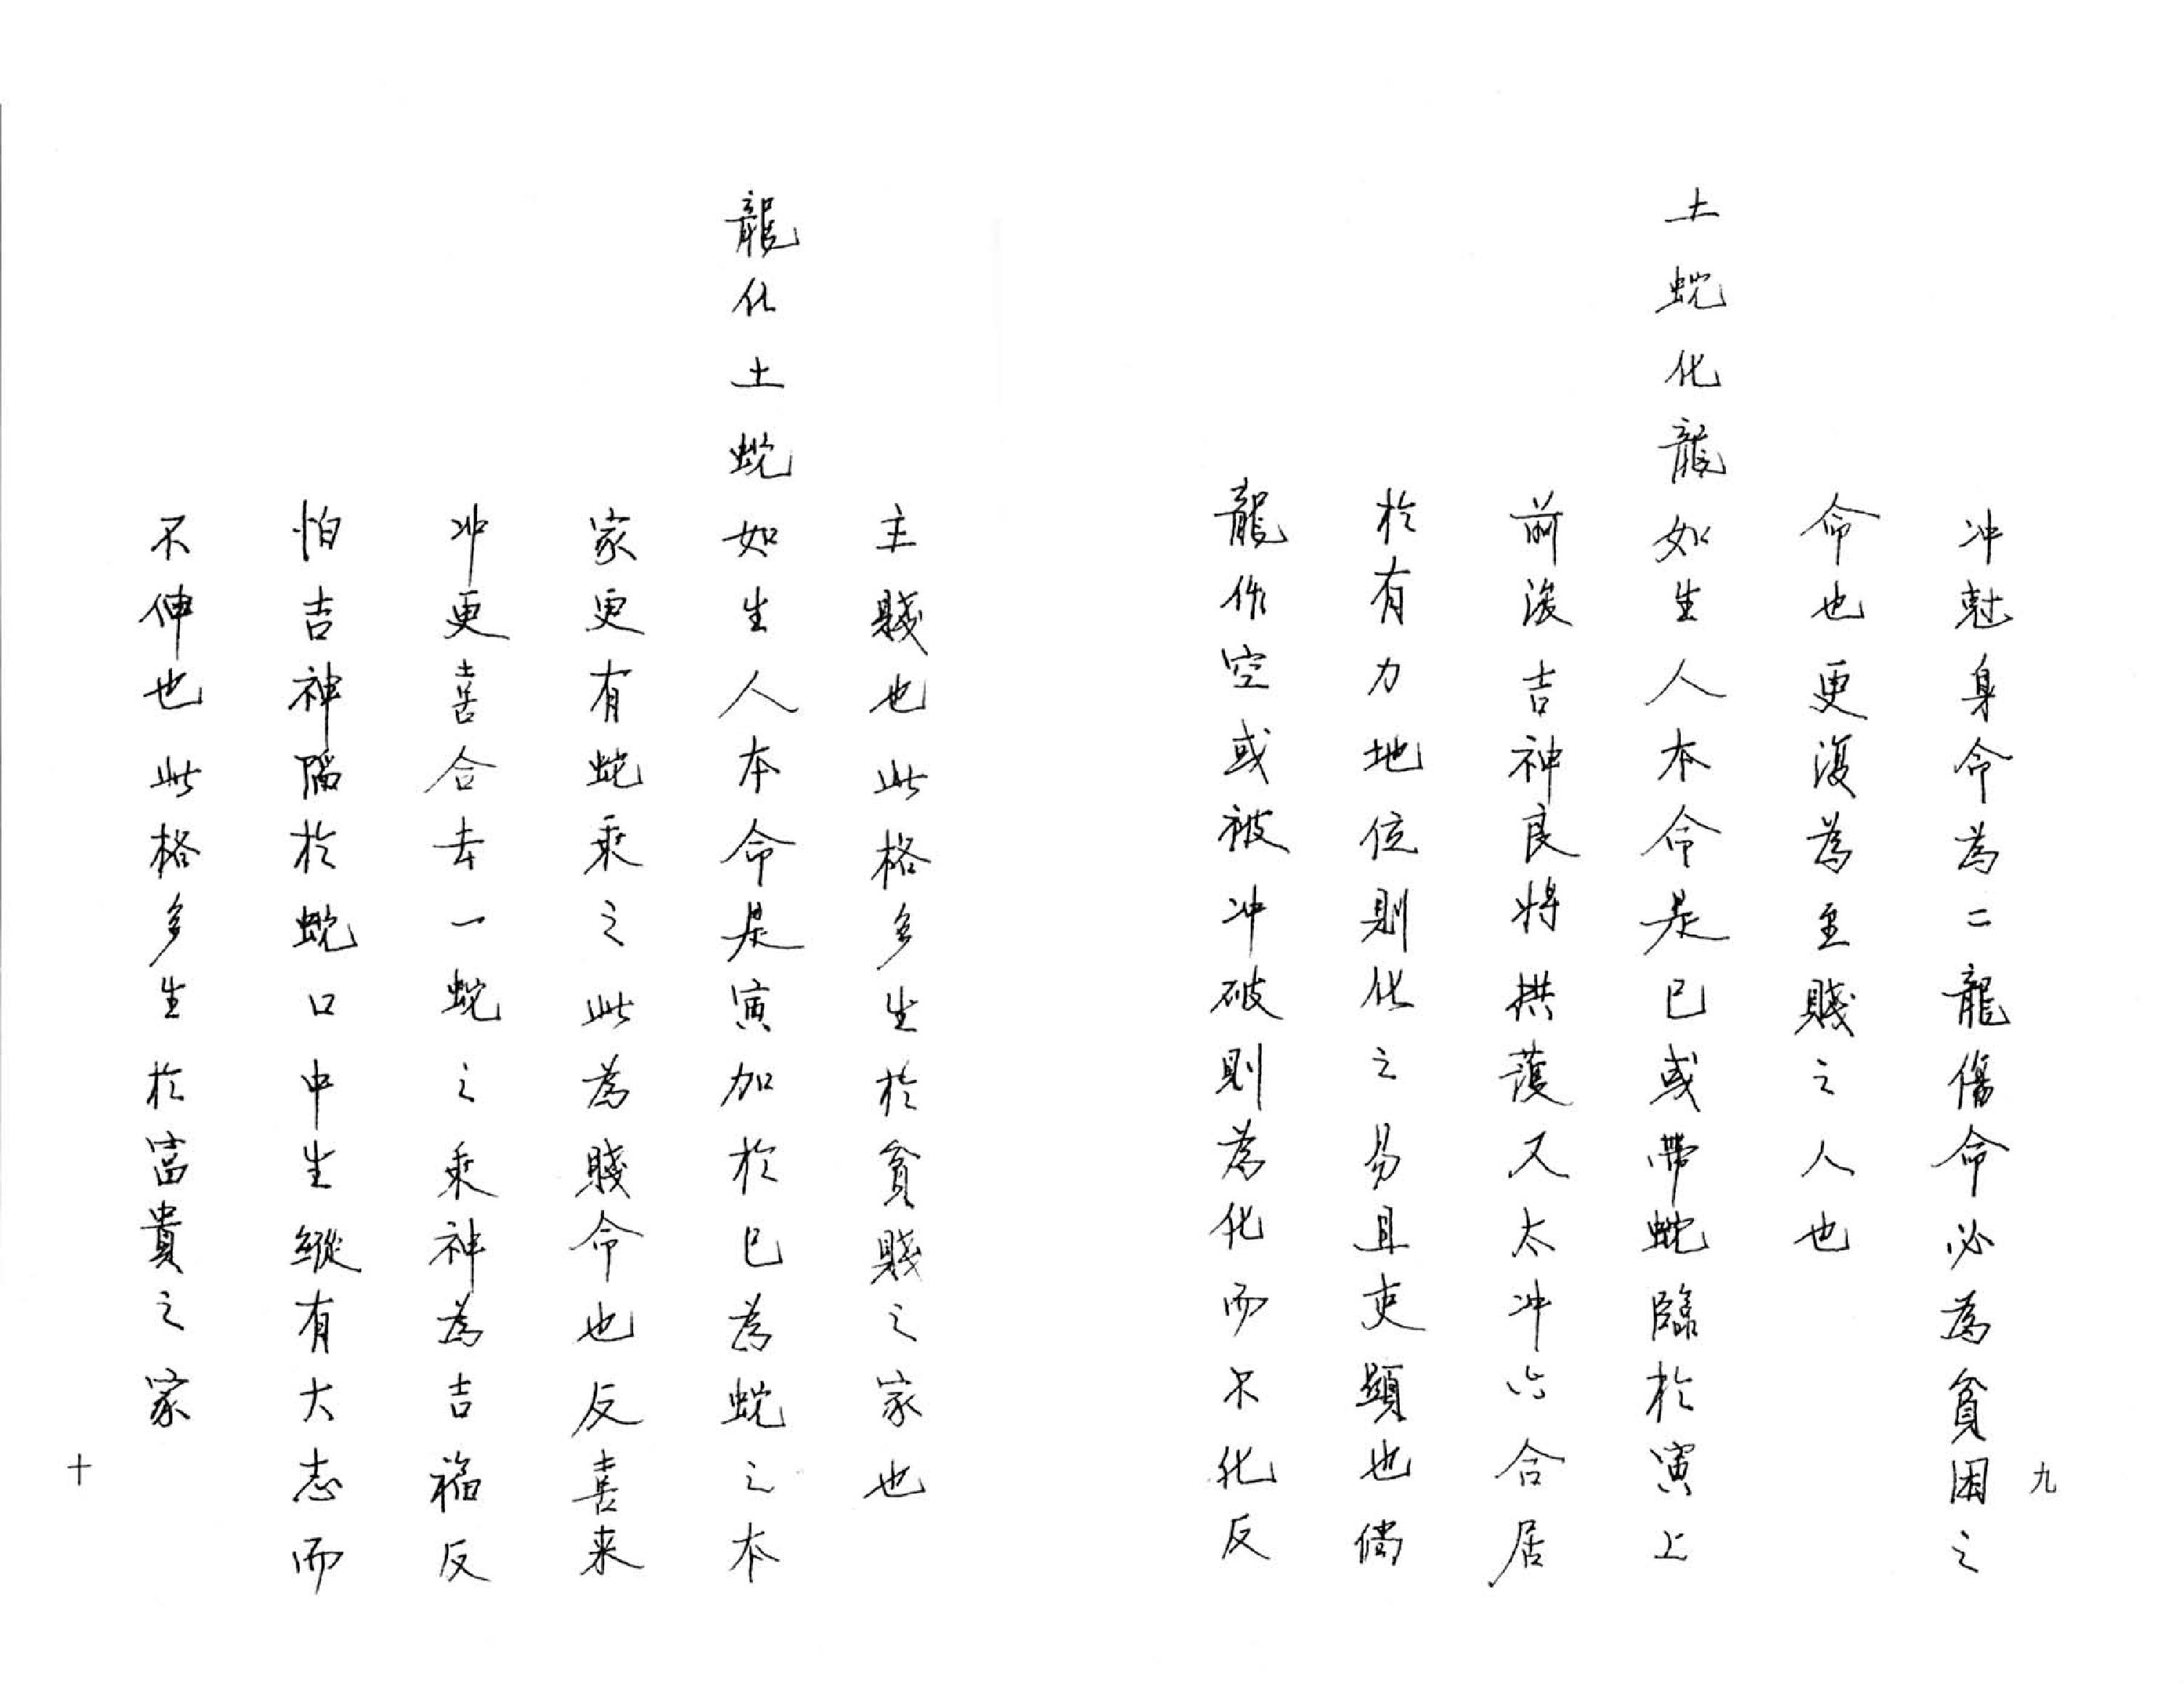 冲尅身命為二龍傷命必為貧困之
命也更復為至賤之人也
土蛇化龍如生人本命是巳或帶蛇臨於寅上
前後吉神良将拱護又太冲六合居
於有力地位則化之易且吏顯也倘
龍作空或被冲破則為化而不化反
九
主賤也此格多生於貧賤之家也
龍化土蛇如生人本命是寅加於巳為蛇之本
家更有蛇乘之此為賤命也反喜来
冲更喜合去一蛇之乘神為吉福反
怕吉神陷於蛇口中生縱有大志而
不伸也此格多生於富貴之家
十